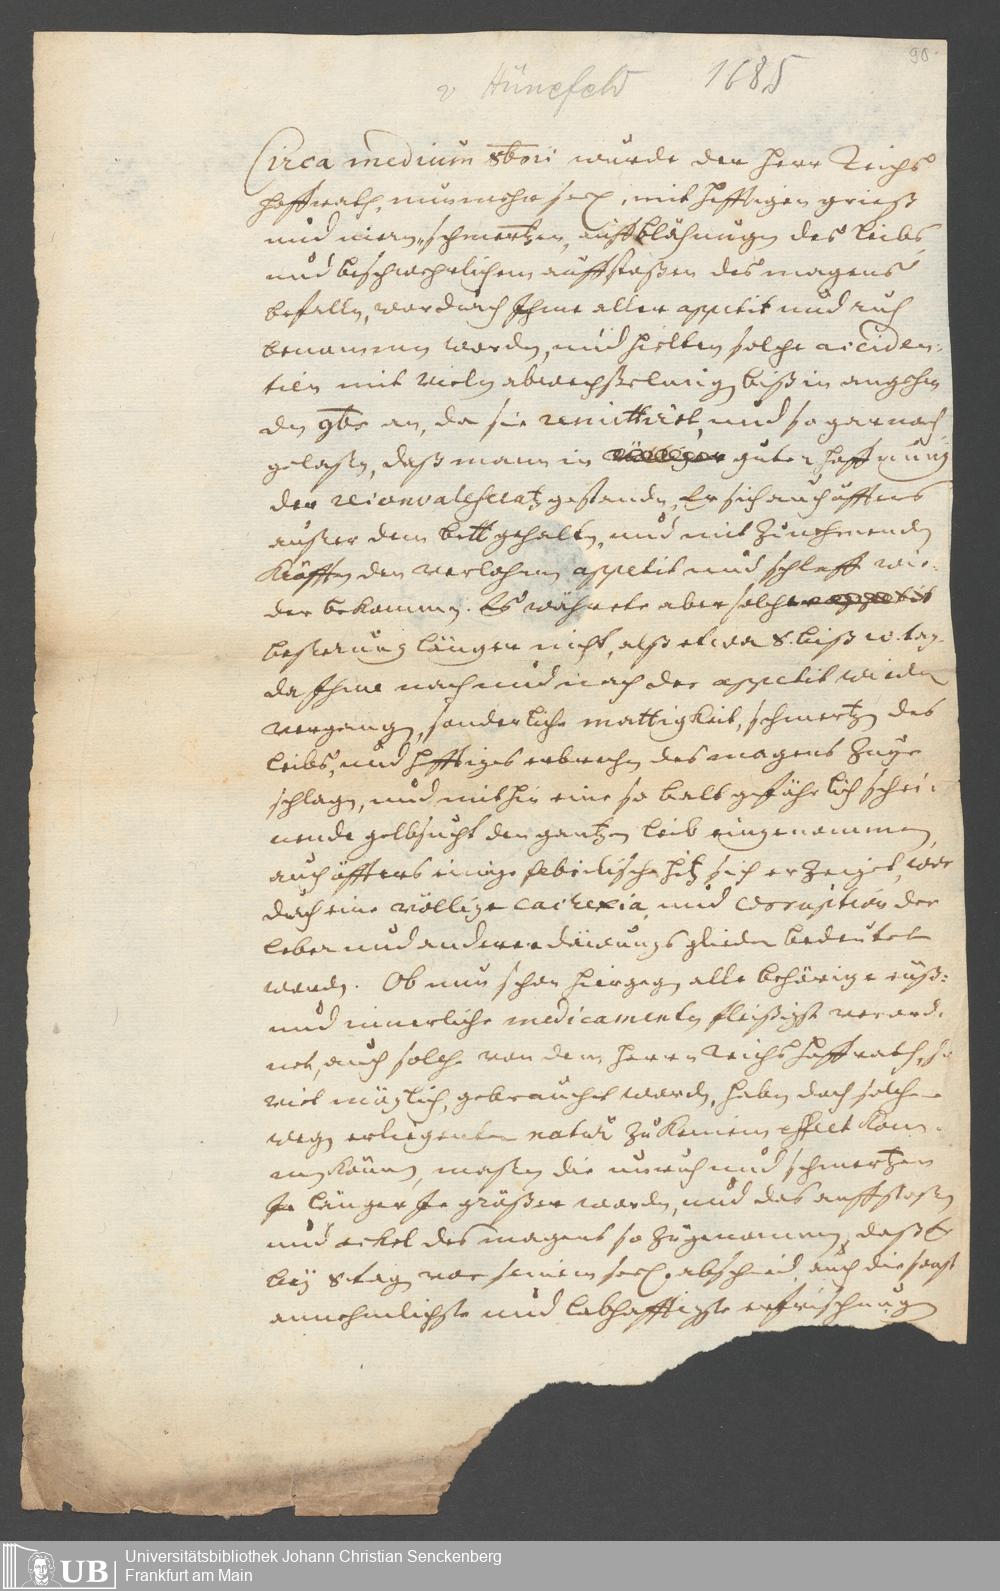 90.
v Hünefeld 1685
Circa medium 8bris wurde der Herr Reichs
Hoffrath, nunmehr seel., mit hefftigen grieß
und nieren schmertzen, auffblähungen des leibs,
und beschwehrlichem auffstoßen des magens
befallen, wordurch Ihme aller appetit und ruh
benommen worden, und hielten solche acciden-
tien mit vielen abwechßelung biß in angehen
den 9br an, da sie remittirt, und so gar nach
gelaßen, daß mann in guter hoffnung
der reconvalescentz gestanden, Er sich auch öffters
außer dem bett gehalten, und mit zunehmenden
Kräfften den verlohrnen appetit und schlaff wie-
der bekommen. Es währete aber solche
beßerung länger nicht, alß etwa 8. biß 10. tag,
da Ihme nach und nach der appetit wieder
vergangen, sonderliche mattigkeit, schmertzen des
leibs, und hefftiges erbrechen des magens zuge
schlagen, und mithin eine so balt gefährlich schei-
nende gelbsucht den gantzen leib eingenommen,
auch öffters einige febrilische hitz sich erzeiget, wor
durch eine völlige cachexia und corruption der
leber und anderer däuungs glieder bedeutet
worden. Ob nun schon hiergegen alle behörige eüß-
und innerliche medicamenten fleißigst verord-
net, auch solche von dem Herrn Reichs Hoffrath, so
viel möglich, gebrauchet worden, haben doch solche
wegen erliegenter natur zu keinem effect kom-
men können, maßen die unruh und schmertzen
Je länger Je größer worden, und das auffstoßen
und eckel des magens so zugenommen, daß Er
bey 8 tagen vor seinem seel. abscheid, auch die sonst
annehmlichste und labhafftigste erfrischungen
Universitätsbibliothek Johann Christian Senckenberg
Frankfurt am Main
UB